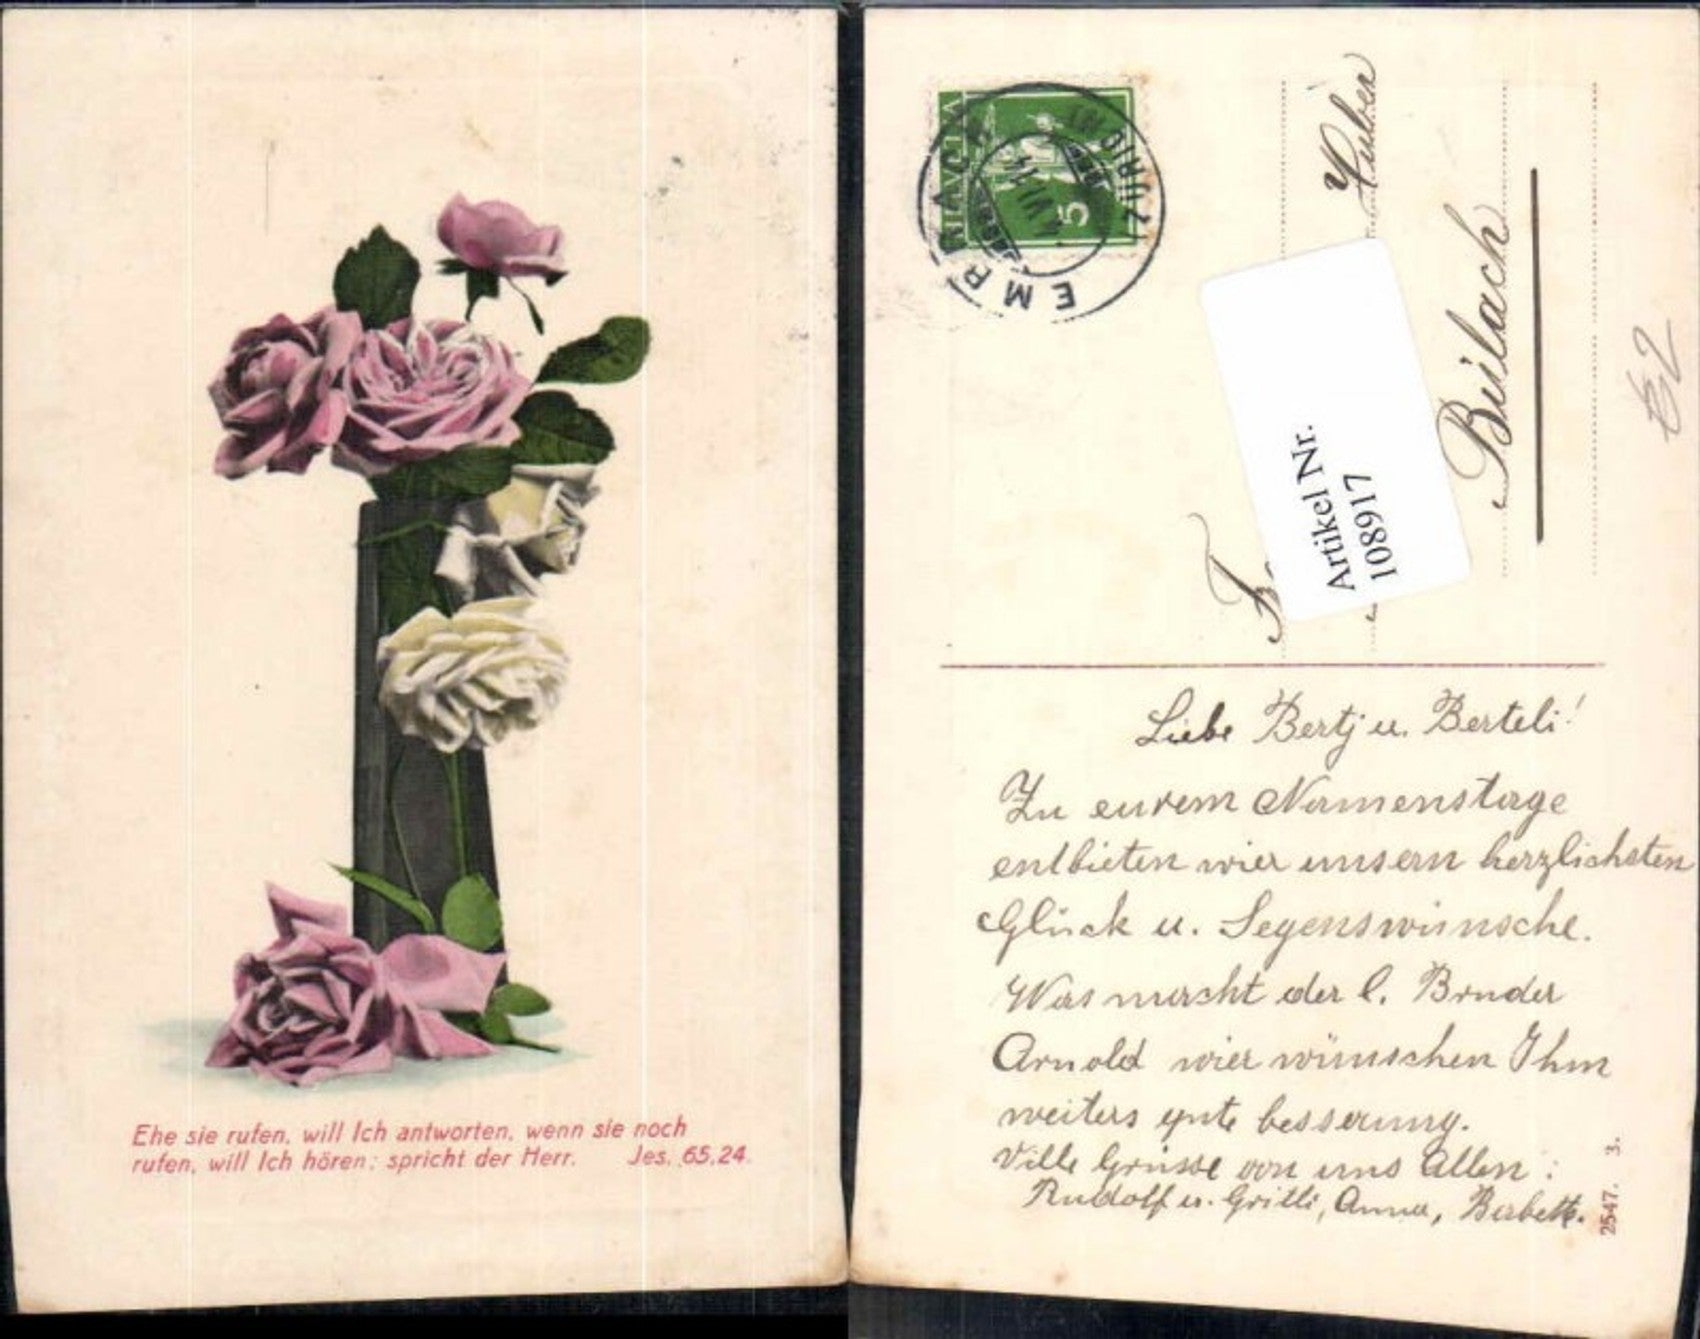 Ehe sie rufen, will Ich antworten, wenn sie noch
rufen, will Ich hören: spricht der Herr. Jes. 65,24.
HELVETIA
5
EMBRACH
ZÜRICH
VII
Huber
Artikel Nr.
108917
Bülach
€2
Liebe Bertj u. Berteli!
Zu eurem Namenstage
entbieten wier unsern herzlichsten
Glück u. Segenswünsche.
Was macht der l. Bruder
Arnold wier wünschen Ihm
weiters gute besserung.
Ville Grüsse von uns Allen:
Rudolf u. Gritli, Anna, Barbette.
2547. 3.